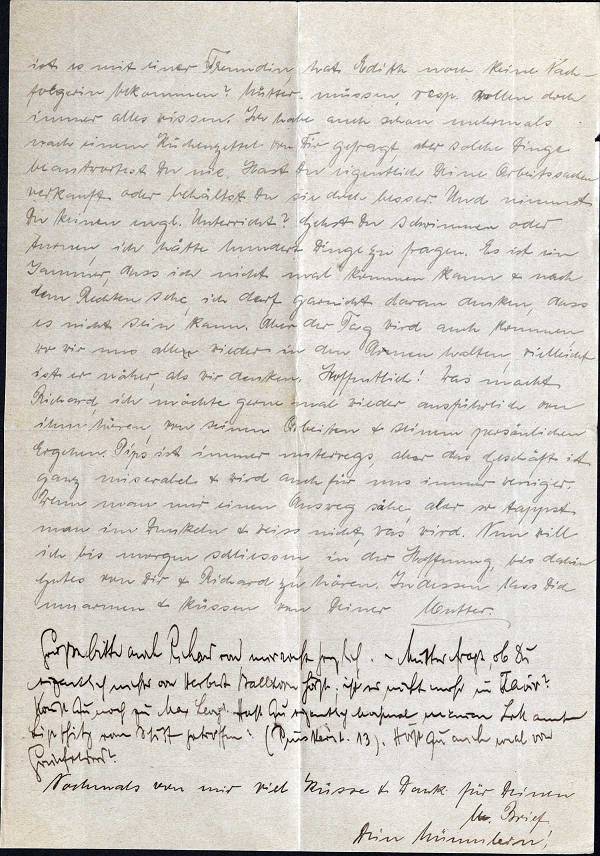 ist es mit einer Freundin, hat Edith noch keine Nach-
folgerin bekommen? Mütter müssen, resp. wollen doch
immer alles wissen. Ich habe auch schon mehrmals
nach einem Küchenzettel von Dir gefragt aber solche Dinge
beantwortest Du nie. Hast Du eigentlich Deine Arbeitssachen
verkauft oder behältst Du sie doch besser. Und nimmst
Du keinen engl. Unterricht? Gehst Du schwimmen oder
turnen, ich hätte hundert Dinge zu fragen. Es ist ein
Jammer, dass ich nicht mal kommen kann & nach
dem Rechten sehe, ich darf garnicht daran denken, dass
es nicht sein kann. Aber der Tag wird auch kommen
wo wir uns alle wieder in den Armen halten, vielleicht
ist er näher, als wir denken. Hoffentlich! Was macht
Richard, ich möchte gerne mal wieder ausführlich von
ihm hören, von seinen Arbeiten & seinem persönlichen
Ergehen. Pips ist immer unterwegs, aber das Geschäft ist
ganz miserabel & wird auch für uns immer weniger.
Wenn man nur einen Ausweg sähe, aber so tappst
man im Dunkeln & weiss nicht, was wird. Nun will
ich bis morgen schliessen in der Hoffnung, bis dahin
Gutes von Dir & Richard zu hören. Indessen lass Dich
umarmen & küssen von Deiner Mutter.
Grüße bitte auch Richard von mir recht herzlich. - Mutter fragt ob Du
eigentlich mehr von Herbert hörst, ist er nicht mehr in
Hörst Du noch zu Max Hast Du eigentlich mal meinen
von getroffen? ( 13). Hörst Du auch mal von
Grünfelds?
Nochmals von mir viel Küsse & Dank für Deinen
l. Brief
Dein Mümmlein!